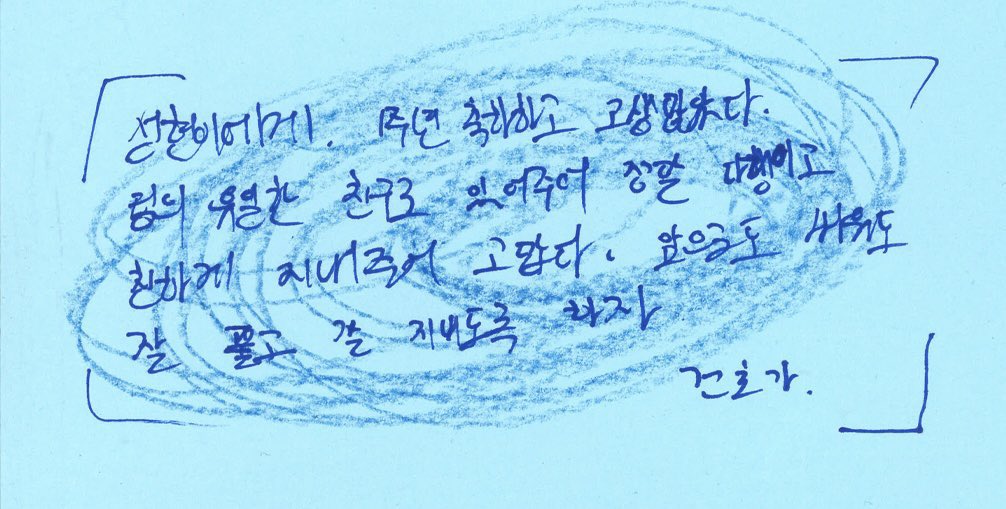 성현이에게. 1주년 축하하고 고생많았다.
팀의 유일한 친구로 있어주어 정말 다행이고
친하게 지내주어 고맙다. 앞으로도 싸워도
잘 풀고 잘 지내도록 하자
건호가.